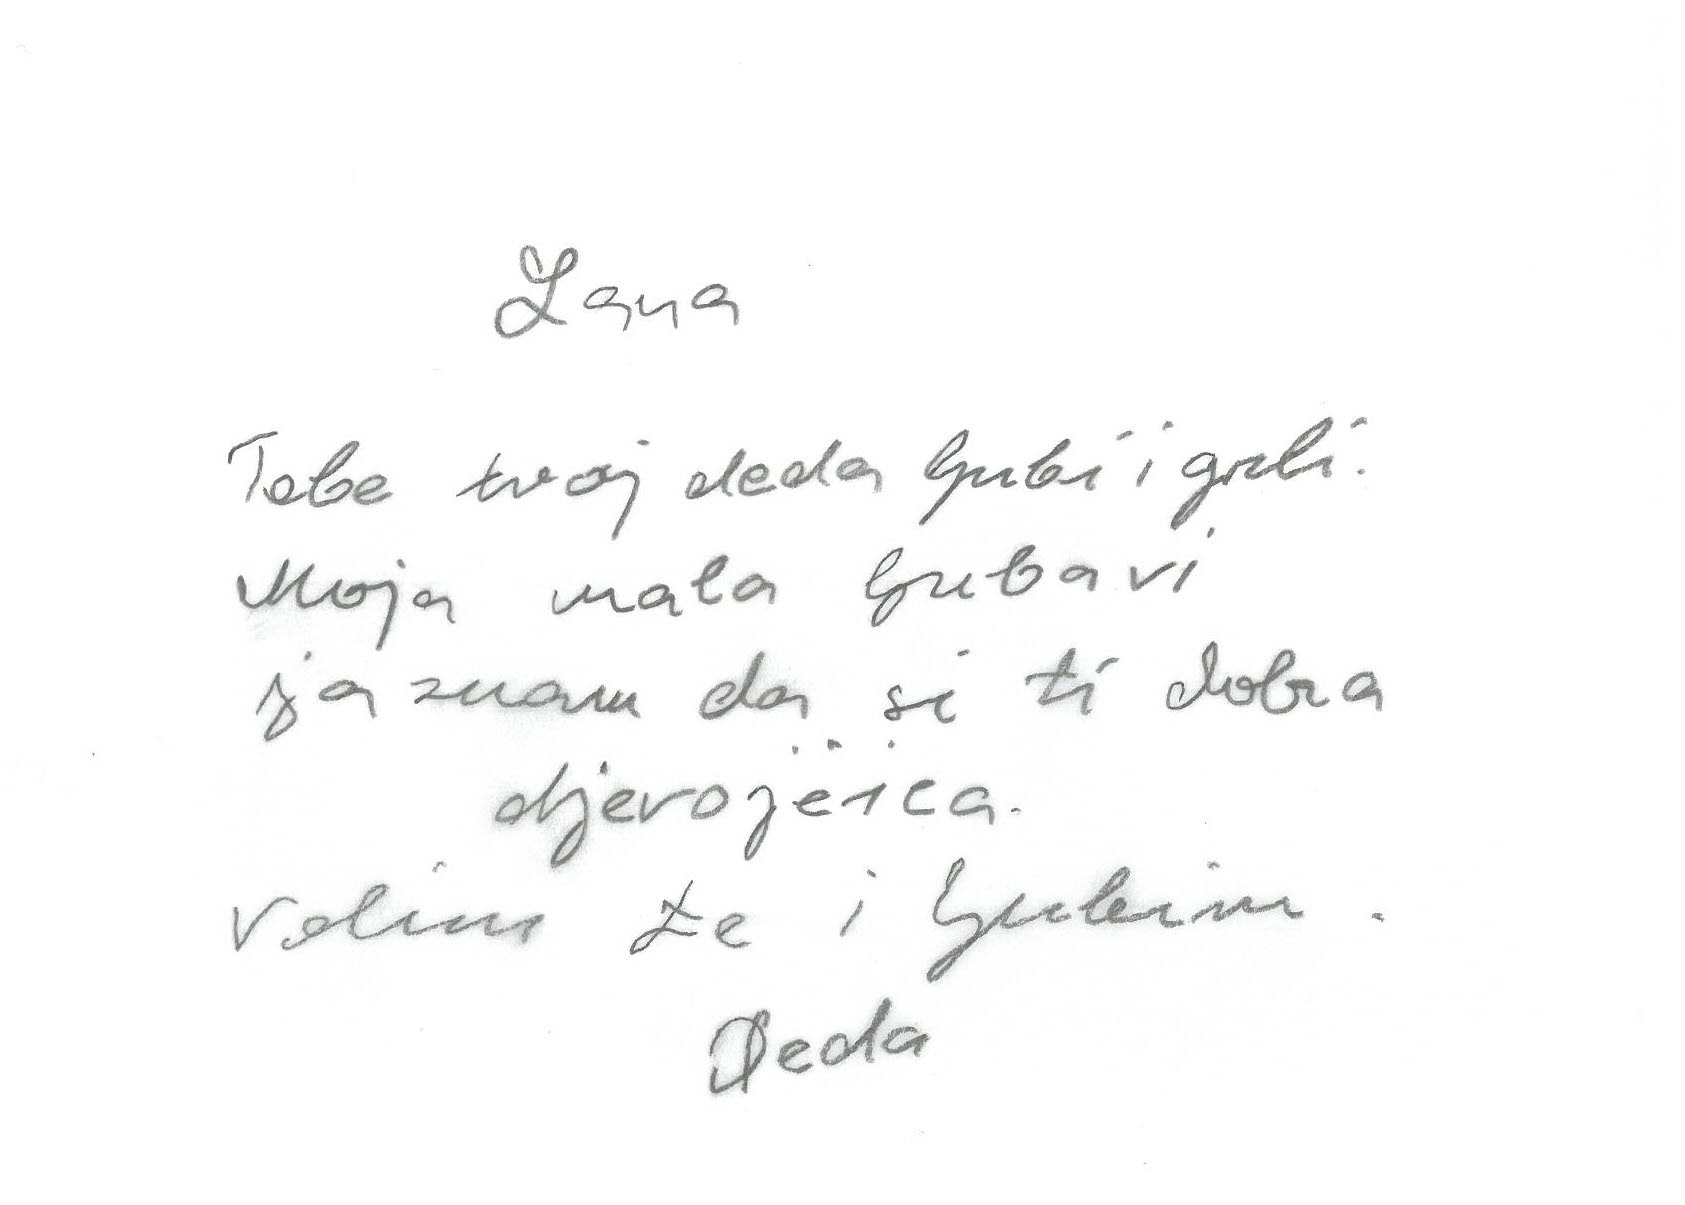 Lana
Tebe tvoj deda ljubi i grli.
Moja mala ljubavi
ja znam da si ti dobra
djevojčica.
Volim te i ljubim.
Deda